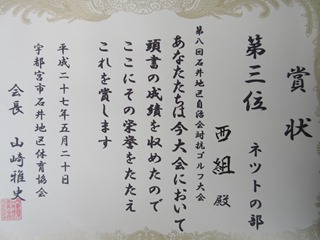 賞状
第三位 ネットの部
西組 殿
第八回石井地区自治会対抗ゴルフ大会
あなたたちは今大会において
頭書の成績を収めたので
ここにその栄誉をたたえ
これを賞します
平成二十七年五月二十日
宇都宮市石井地区体育協会
会長 山崎雅史